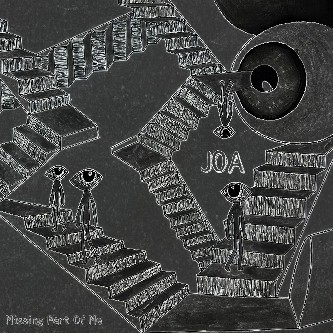 JOA
Missing Part Of Me